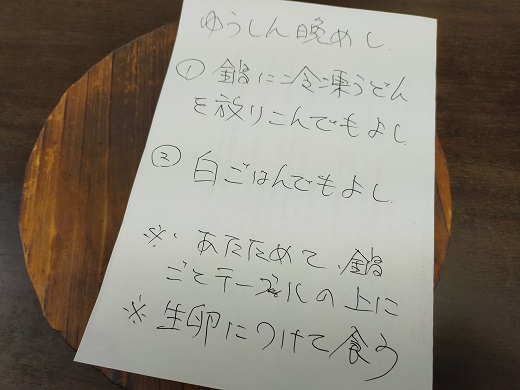 ゆうしん晩めし
① 鍋に冷凍うどん
を放りこんでもよし
② 白ごはんでもよし
※・あたためて、鍋
ごとテーブルの上に
※ 生卵につけて食う